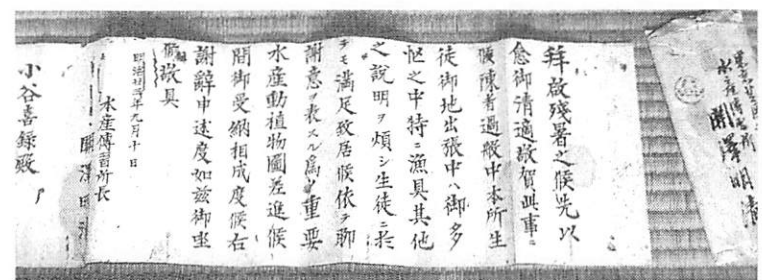 水産傳習所
關澤明清
拜啟殘暑之候先以
愈御清適敬賀此事ニ
候陳者過般中本所生
徒御地出張中ハ御多
忙之中特ニ漁具其他
之説明ヲ煩シ生徒ニ於
テモ満足致居候依テ聊
謝意ヲ表スル為メ重要
水産動植物圖差進候
間御受納相成度候右
謝辭申述度如兹御坐
候敬具
明治廿三年九月十日
水産傳習所長
關澤明清
小谷喜録殿